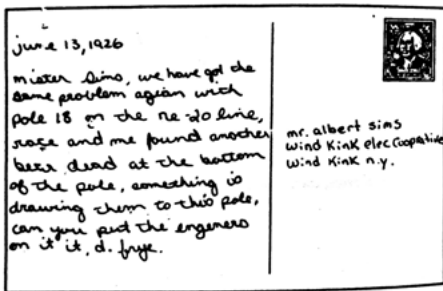 june 13, 1926
mister Sims, we have got the
same problem agian with
pole 18 on the ne-20 line,
rose and me found another
bear dead at the bottom
of the pole, something is
drawing them to this pole,
can you put the engeners
on it it, d. frye.
mr. albert sims
wind kink elec cooperative
wind kink n.y.